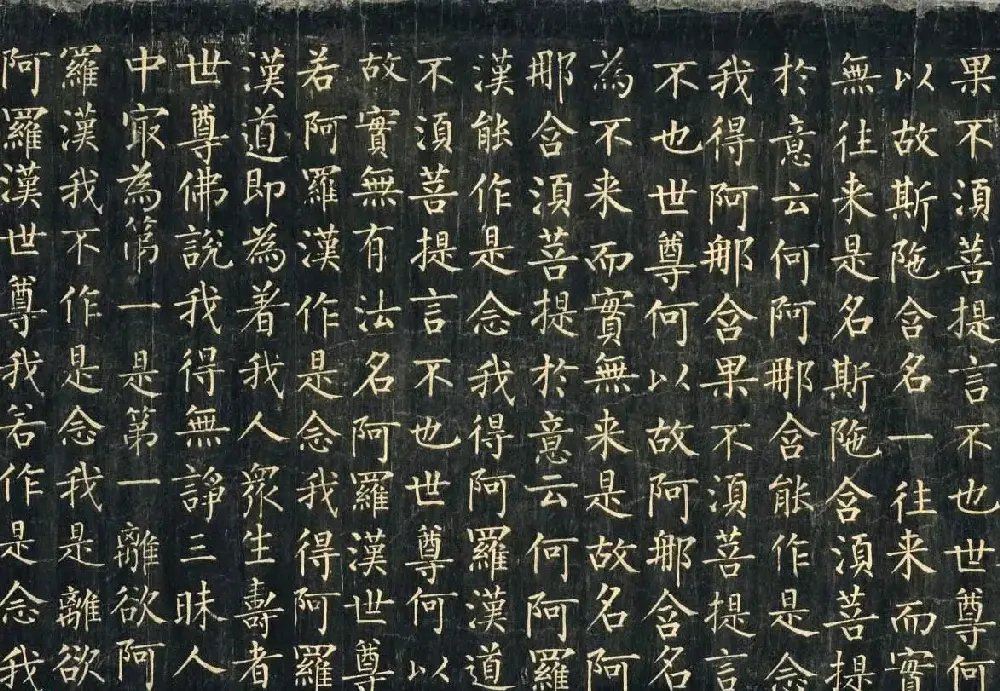 果不須菩提言不也世尊何
以故斯陁含名一往来而實
無往来是名斯陁含須菩提
於意云何阿那含能作是念
我得阿那含果不須菩提言
不也世尊何以故阿那含名
為不来而實無来是故名阿
那含須菩提於意云何阿羅
漢能作是念我得阿羅漢道
不須菩提言不也世尊何以
故實無有法名阿羅漢世尊
若阿羅漢作是念我得阿羅
漢道即為着我人眾生壽者
世尊佛說我得無諍三昧人
中冣為第一是第一離欲阿
羅漢我不作是念我是離欲
阿羅漢世尊我若作是念我